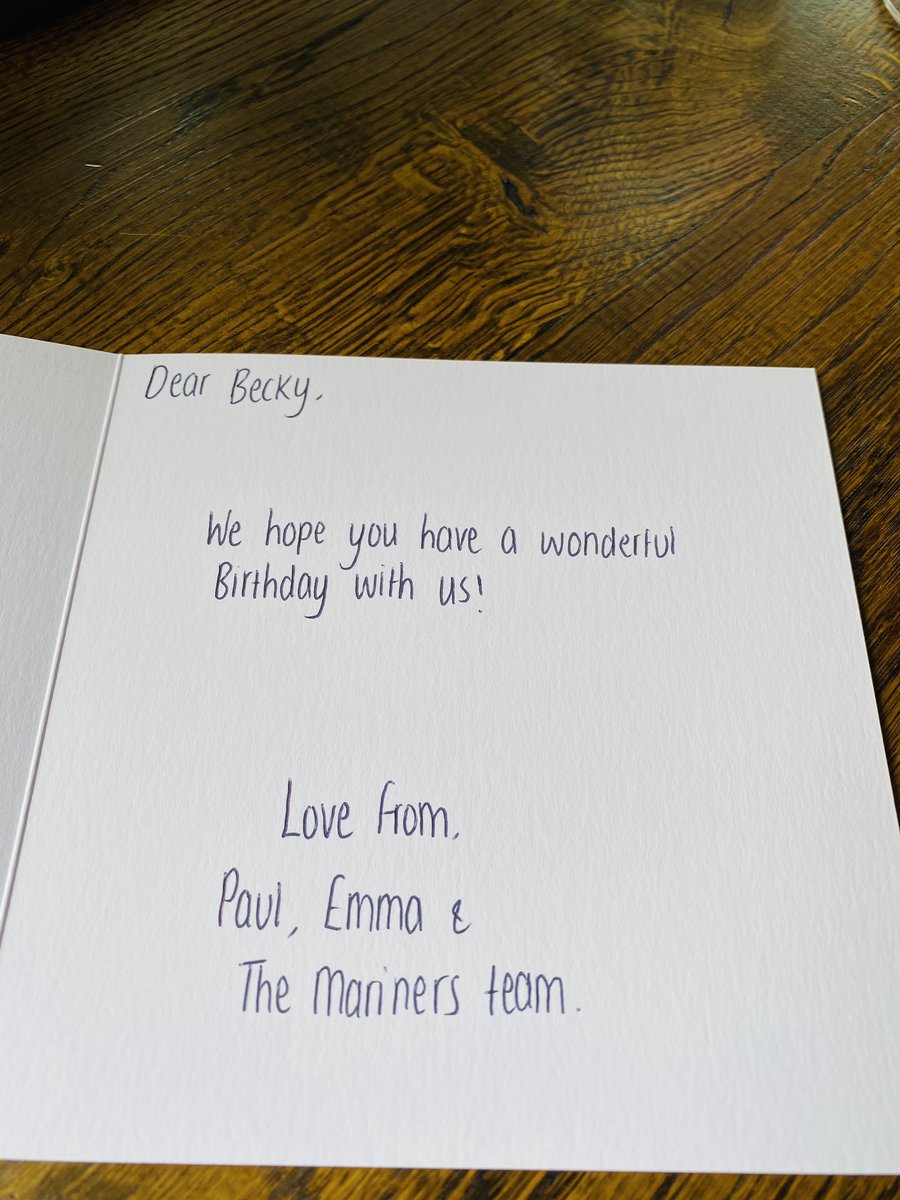 Dear Becky,
We hope you have a wonderful
Birthday with us!
Love from,
Paul, Emma &
The Mariners team.